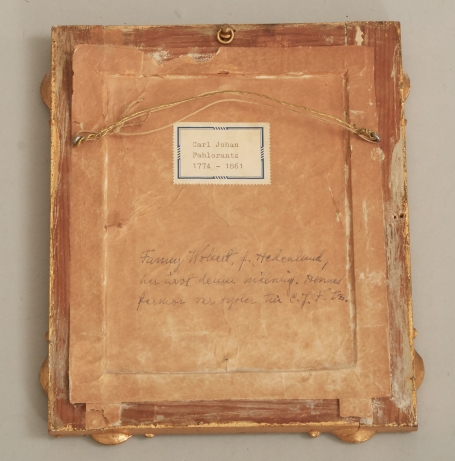 Carl Johan
Fahlcrantz
1774 - 1861
Fanny Wolbert, f. Hedenlund,
har ägt denna målning. Hennes
farmor var syster till C. J. F. Da.